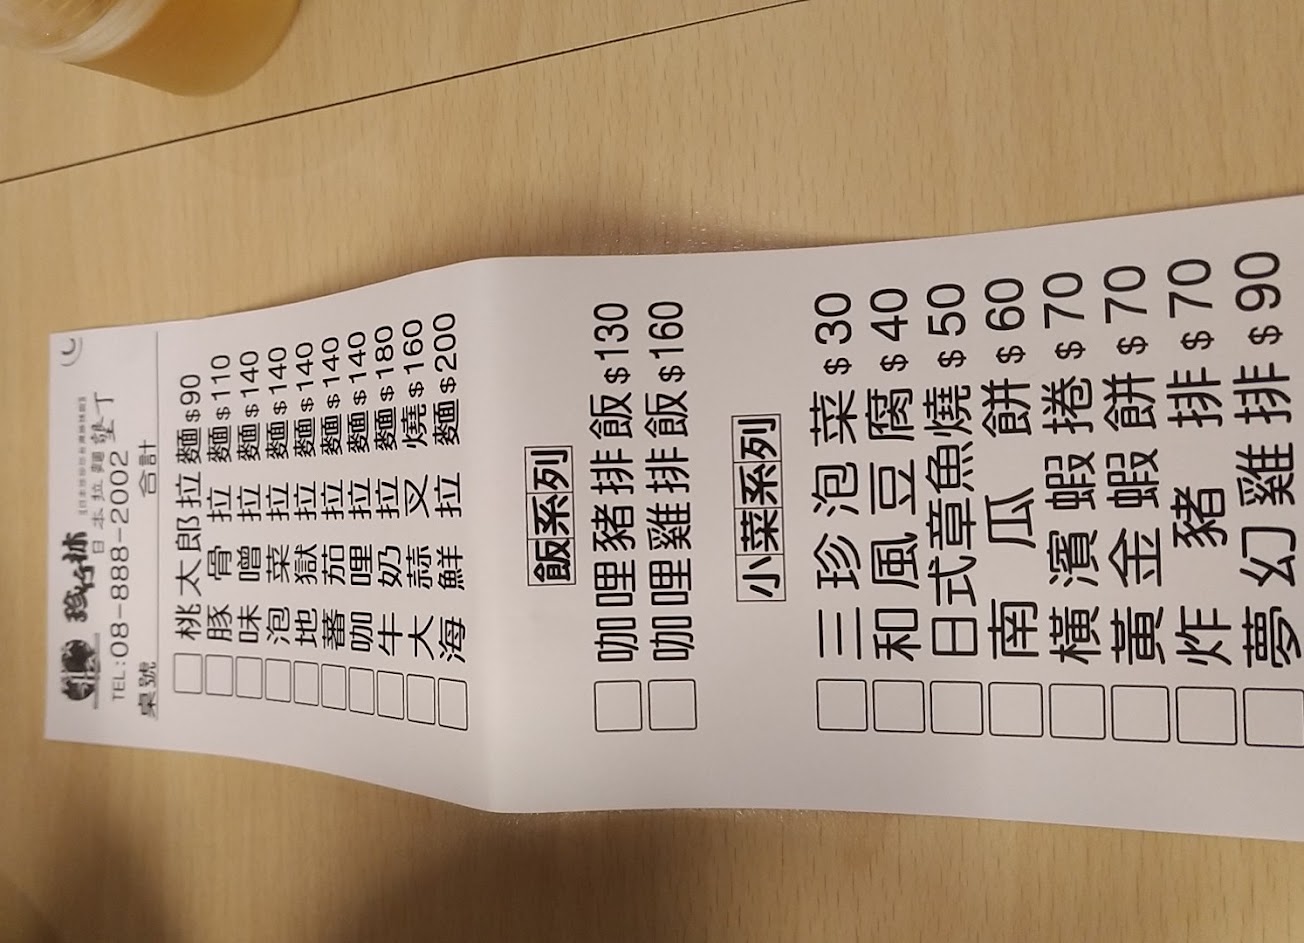 日本拉麵墾丁
TEL:08-888-2002
桌號 合計
桃太郎拉麵$90
豚骨拉麵$110
味噌拉麵$140
泡菜拉麵$140
地獄拉麵$140
蕃茄拉麵$140
咖哩拉麵$140
牛奶拉麵$180
大蒜叉燒$160
海鮮拉麵$200
飯系列
咖哩豬排飯$130
咖哩雞排飯$160
小菜系列
三珍泡菜$30
和風豆腐$40
日式章魚燒$50
南瓜餅$60
橫濱蝦捲$70
黃金蝦餅$70
炸豬排$70
夢幻雞排$90